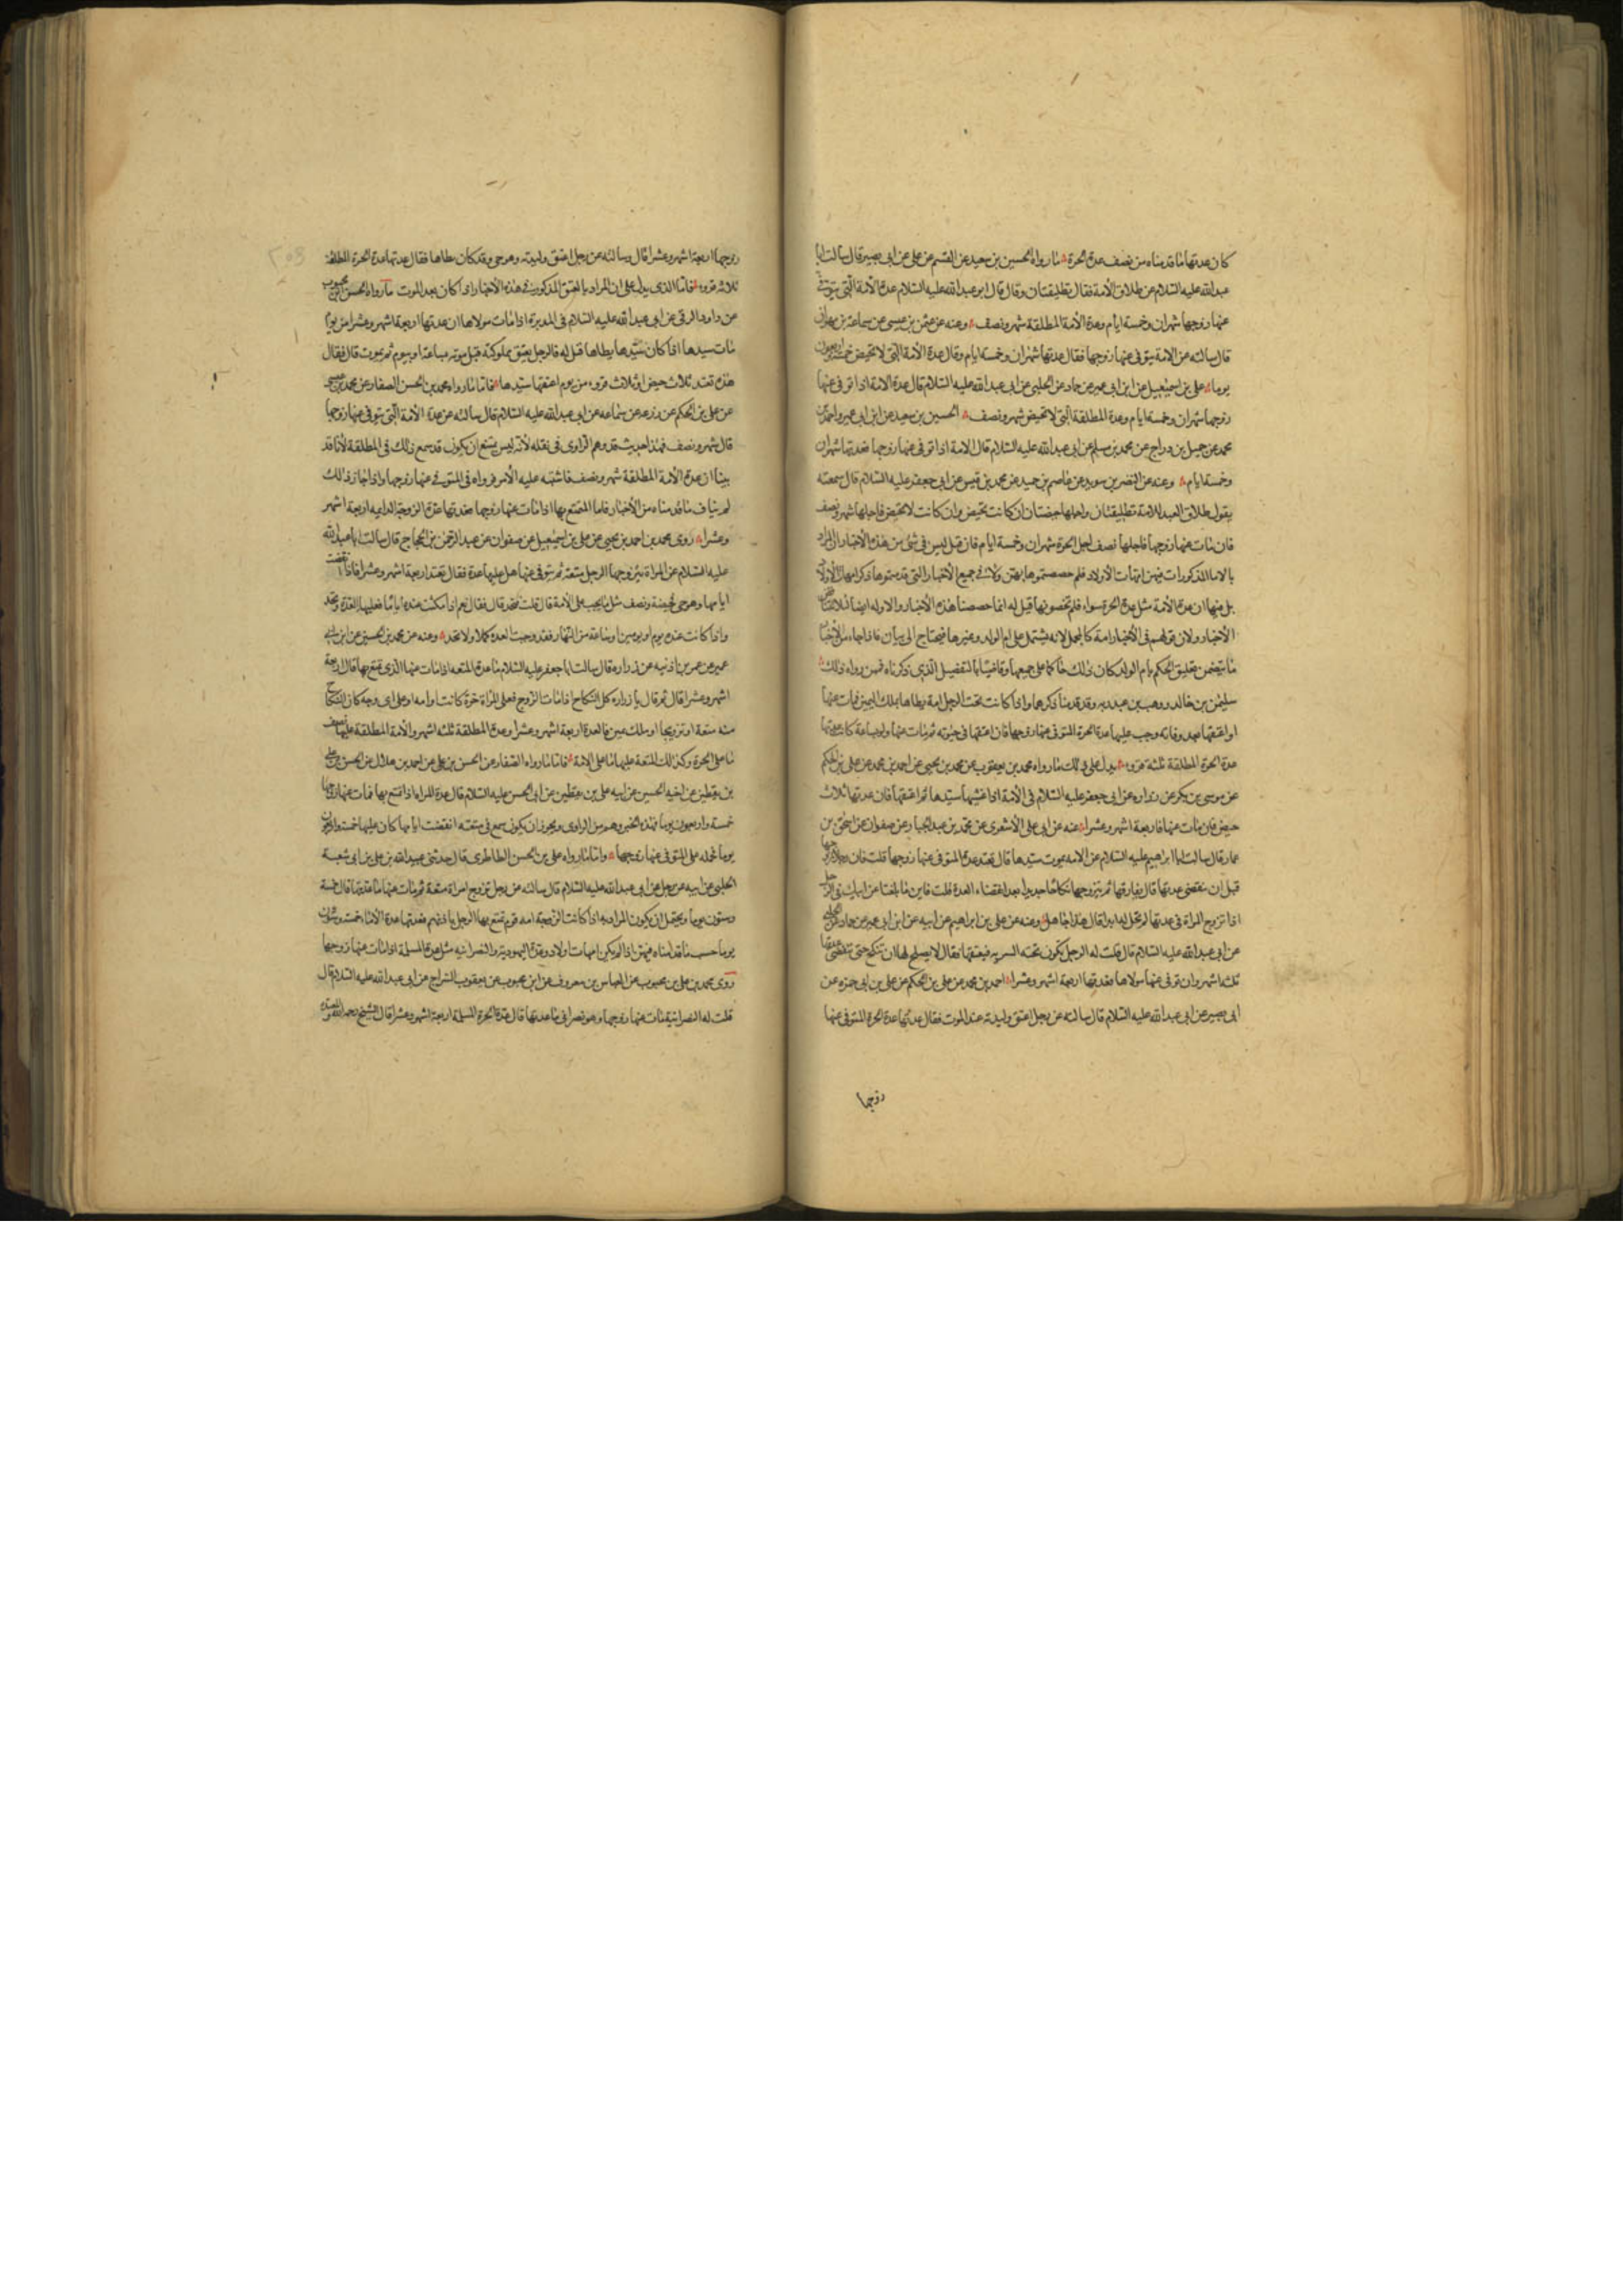 كان عدتها ما قدمناه من نصف عدة الحرة ما رواه الحسين بن سعيد عن القسم عن علي عن ابي بصير قال سالت ابا
عبد الله عليه السلام عن طلاق الامة فقال تطليقتان وقال قال ابو عبد الله عليه السلام عدة الأمة التي يتوفى
عنها زوجها شهران وخمسة ايام وعدة الأمة المطلقة شهر ونصف وعنه عن عثمن بن عيسى عن سماعة بن مهران
قال سالته عن الامة يتوفى عنها زوجها فقال عدتها شهران وخمسة ايام وقال عدة الأمة التي لا تحيض خمسة واربعون
يوما علي بن اسمعيل عن ابن ابي عمير عن حماد عن الحلبي عن ابي عبد الله عليه السلام قال عدة الامة اذا توفي عنها
زوجها شهران وخمسة ايام وعدة المطلقة التي لا تحيض شهر ونصف الحسين بن سعيد عن ابن ابي عمير واحمد بن
محمد عن جميل بن دراج عن محمد بن مسلم عن ابي عبد الله عليه السلام قال الامة اذا توفي عنها زوجها فعدتها شهران
وخمسة ايام وعنه عن النضر بن سويد عن عاصم بن حميد عن محمد بن قيس عن ابي جعفر عليه السلام قال سمعته
يقول طلاق العبد للامة تطليقتان واجلها حيضتان ان كانت تحيض وان كانت لا تحيض فاجلها شهر ونصف
فان مات عنها زوجها فاجلها نصف اجل الحرة شهران وخمسة ايام فان قيل ليس في شئ من هذه الأخبار ان المراد
بالاماء المذكورات فيهن امهات الأولاد فلم خصصتموها بهن ولا في جميع الأخبار التي قدمتموها ذكر امهات الأولاد
بل فيها ان عدة الأمة مثل عدة الحرة سواء فلم تخصونها قيل له انما خصصنا هذه الأخبار والاوله ايضا لئلا تتناقض
الأخبار ولان قولهم في الأخبار امة كالمجمل لانه يشتمل على ام الولد وغيرها فيحتاج الى بيان فاذا جاء من الأخبار
ما يتضمن تعليق الحكم بام الولد كان ذلك حاكما على جميعها وقاضيا بالتفصيل الذي ذكرناه فمن رواه ذلك
سليمن بن خالد ووهب بن عبد ربه وقد قدمنا ذكرهما واذا كانت تحت الرجل امة يطاها بملك اليمين فمات عنها
او اعتقها بعد وفاته وجب عليها عدة الحرة المتوفى عنها زوجها فان اعتقها في حيوته ثم مات عنها ولو بساعة كانت عدتها
عدة الحرة المطلقة ثلثة قروء يدل على ذلك ما رواه محمد بن يعقوب عن محمد بن يحيى عن احمد بن محمد عن علي بن الحكم
عن موسى بن بكر عن زراره عن ابي جعفر عليه السلام في الأمة اذا غشيها سيدها ثم اعتقها فان عدتها ثلاث
حيض فان مات عنها فاربعة اشهر وعشرا عنه عن ابي علي الأشعري عن محمد بن عبد الجبار وعن صفوان عن اسحق بن
عمار قال سالت ابا ابراهيم عليه السلام عن الامه يموت سيدها قال تعتد عدة المتوفى عنها زوجها قلت فان رجلا تزوجها
قبل ان تنقضي عدتها قال يفارقها ثم يتزوجها نكاحا جديدا بعد انقضاء العدة قلت فاين ما بلغنا عن ابيك في الرجل
اذا تزوج المراة في عدتها لم تحل له ابدا قال هذا جاهل وعنه عن علي بن ابراهيم عن ابيه عن ابن ابي عمير عن حماد عن الحلبي
عن ابي عبد الله عليه السلام قال قلت له الرجل تكون تحته السريه فيعتقها فقال لا يصلح لها ان تنكح حتى تنقضي عدتها
ثلثه اشهر وان توفي عنها مولاها فعدتها اربعة اشهر وعشرا احمد بن محمد عن علي بن الحكم عن علي بن ابي حمزه عن
ابي بصير عن ابي عبد الله عليه السلام قال سالته عن رجل اعتق وليدته عند الموت فقال عدتها عدة الحرة المتوفى عنها
زوجها
زوجها اربعة اشهر وعشرا قال وسالته عن رجل اعتق وليدته وهو حي وقد كان يطاها فقال عدتها عدة الحرة المطلقة
ثلاثه قروء فاما الذي يدل على ان المراد بالمعتق المذكور في هذه الأخبار اذا كان بعد الموت ما رواه الحسن بن محبوب
عن داود الرقي عن ابي عبد الله عليه السلام في المدبرة اذا مات مولاها ان عدتها اربعة اشهر وعشرا من يوم
مات سيدها اذا كان سيدها يطاها قيل له فالرجل يعتق مملوكته قبل موته بساعة او بيوم ثم يموت قال فقال
هذه تعتد ثلاث حيض او ثلاث قروء من يوم اعتقها سيدها فاما ما رواه محمد بن الحسن الصفار عن محمد بن عيسى
عن علي بن الحكم عن زرعه عن سماعه عن ابي عبد الله عليه السلام قال سالته عن عدة الأمة التي يتوفى عنها زوجها
قال شهر ونصف فهذا حديث قد وهم الراوي في نقله لأنه ليس يمتنع ان يكون قد سمع ذلك في المطلقة لأنا قد
بينا ان عدة الأمة المطلقة شهر ونصف فاشتبه عليه الأمر فرواه في المتوفى عنها زوجها واذا جاز ذلك
لم يناف ما قدمناه من الأخبار فاما المتمتع بها اذا مات عنها زوجها فعدتها عدة الزوجة الدايمه اربعة اشهر
وعشرا روى محمد بن احمد بن يحيى عن علي بن اسمعيل عن صفوان عن عبد الرحمن بن الحجاج قال سالت ابا عبد الله
عليه السلام عن المراة يتزوجها الرجل متعة ثم يتوفى عنها هل عليها عدة فقال تعتد اربعة اشهر وعشرا فاذا انقضت
ايامها وهو حي فحيضة ونصف مثل ما يجب على الأمة قال قلت فتحد قال فقال نعم اذا مكثت عنده اياما فعليها العدة وتحد
واذا كانت عنده يوم او يومين او ساعة من النهار فقد وجبت العده كملا ولا تحد وعنه عن محمد بن الحسين عن ابن ابي
عمير عن عمر بن اذينه عن زراره قال سالت ابا جعفر عليه السلام ما عدة المتعه اذا مات عنها الذي تمتع بها قال اربعة
اشهر وعشرا قال ثم قال يا زراره كل النكاح اذا مات الزوج فعلى المراة حرة كانت او امه او على اي وجه كان النكاح
منه متعة او تزويجا او ملك يمين فالعدة اربعة اشهر وعشرا وعدة المطلقة ثلثه اشهر والأمة المطلقة عليها نصف
ما على الحرة وكذلك المتعة عليها ما على الامة فاما ما رواه الصفار عن الحسن بن علي عن احمد بن هلال عن الحسن بن علي
بن يقطين عن اخيه الحسين عن ابيه علي بن يقطين عن ابي الحسن عليه السلام قال عدة المراه اذا تمتع بها فمات عنها زوجها
خمسة واربعون يوما فهذه الخبر وهم من الراوي ويجوز ان يكون سمع في متعته انقضت ايامها كان عليها خمسة واربعون
يوما فحمله على المتوفى عنها زوجها واما ما رواه علي بن الحسن الطاطري قال حدثني عبيد الله بن علي بن ابي شعبة
الحلبي عن ابيه عن رجل عن ابي عبد الله عليه السلام قال سالته عن رجل تزوج امراة متعة ثم مات عنها ما عدتها قال خمسة
وستون يوما ويحتمل ان يكون المراد به اذا كانت الزوجة امه قوم تمتع بها الرجل باذنهم فعدتها عدة الأماء خمسة وستون
يوما حسب ما قدمناه فيهن اذا لم يكن امهات اولاد وعدة اليهوديه والنصرانيه مثل عدة المسلمة اذا مات عنها زوجها
روى محمد بن علي بن محبوب عن العباس بن معروف عن ابن محبوب عن يعقوب السراج عن ابي عبد الله عليه السلام قال
قلت له النصرانية مات عنها زوجها وهو نصراني ما عدتها قال عدة الحرة المسلمة اربعة اشهر وعشرا قال الشيخ رحمه الله